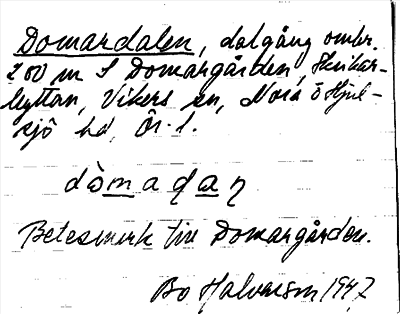 Domardalen, dalgång omkr.
200 m S Domargården, Skrikar-
hyttan, Vikers sn, Nora o Hjul-
sjö hd, Ör. l.
dòmadan
Betesmark till Domargården.
Bo Halvarson 1947